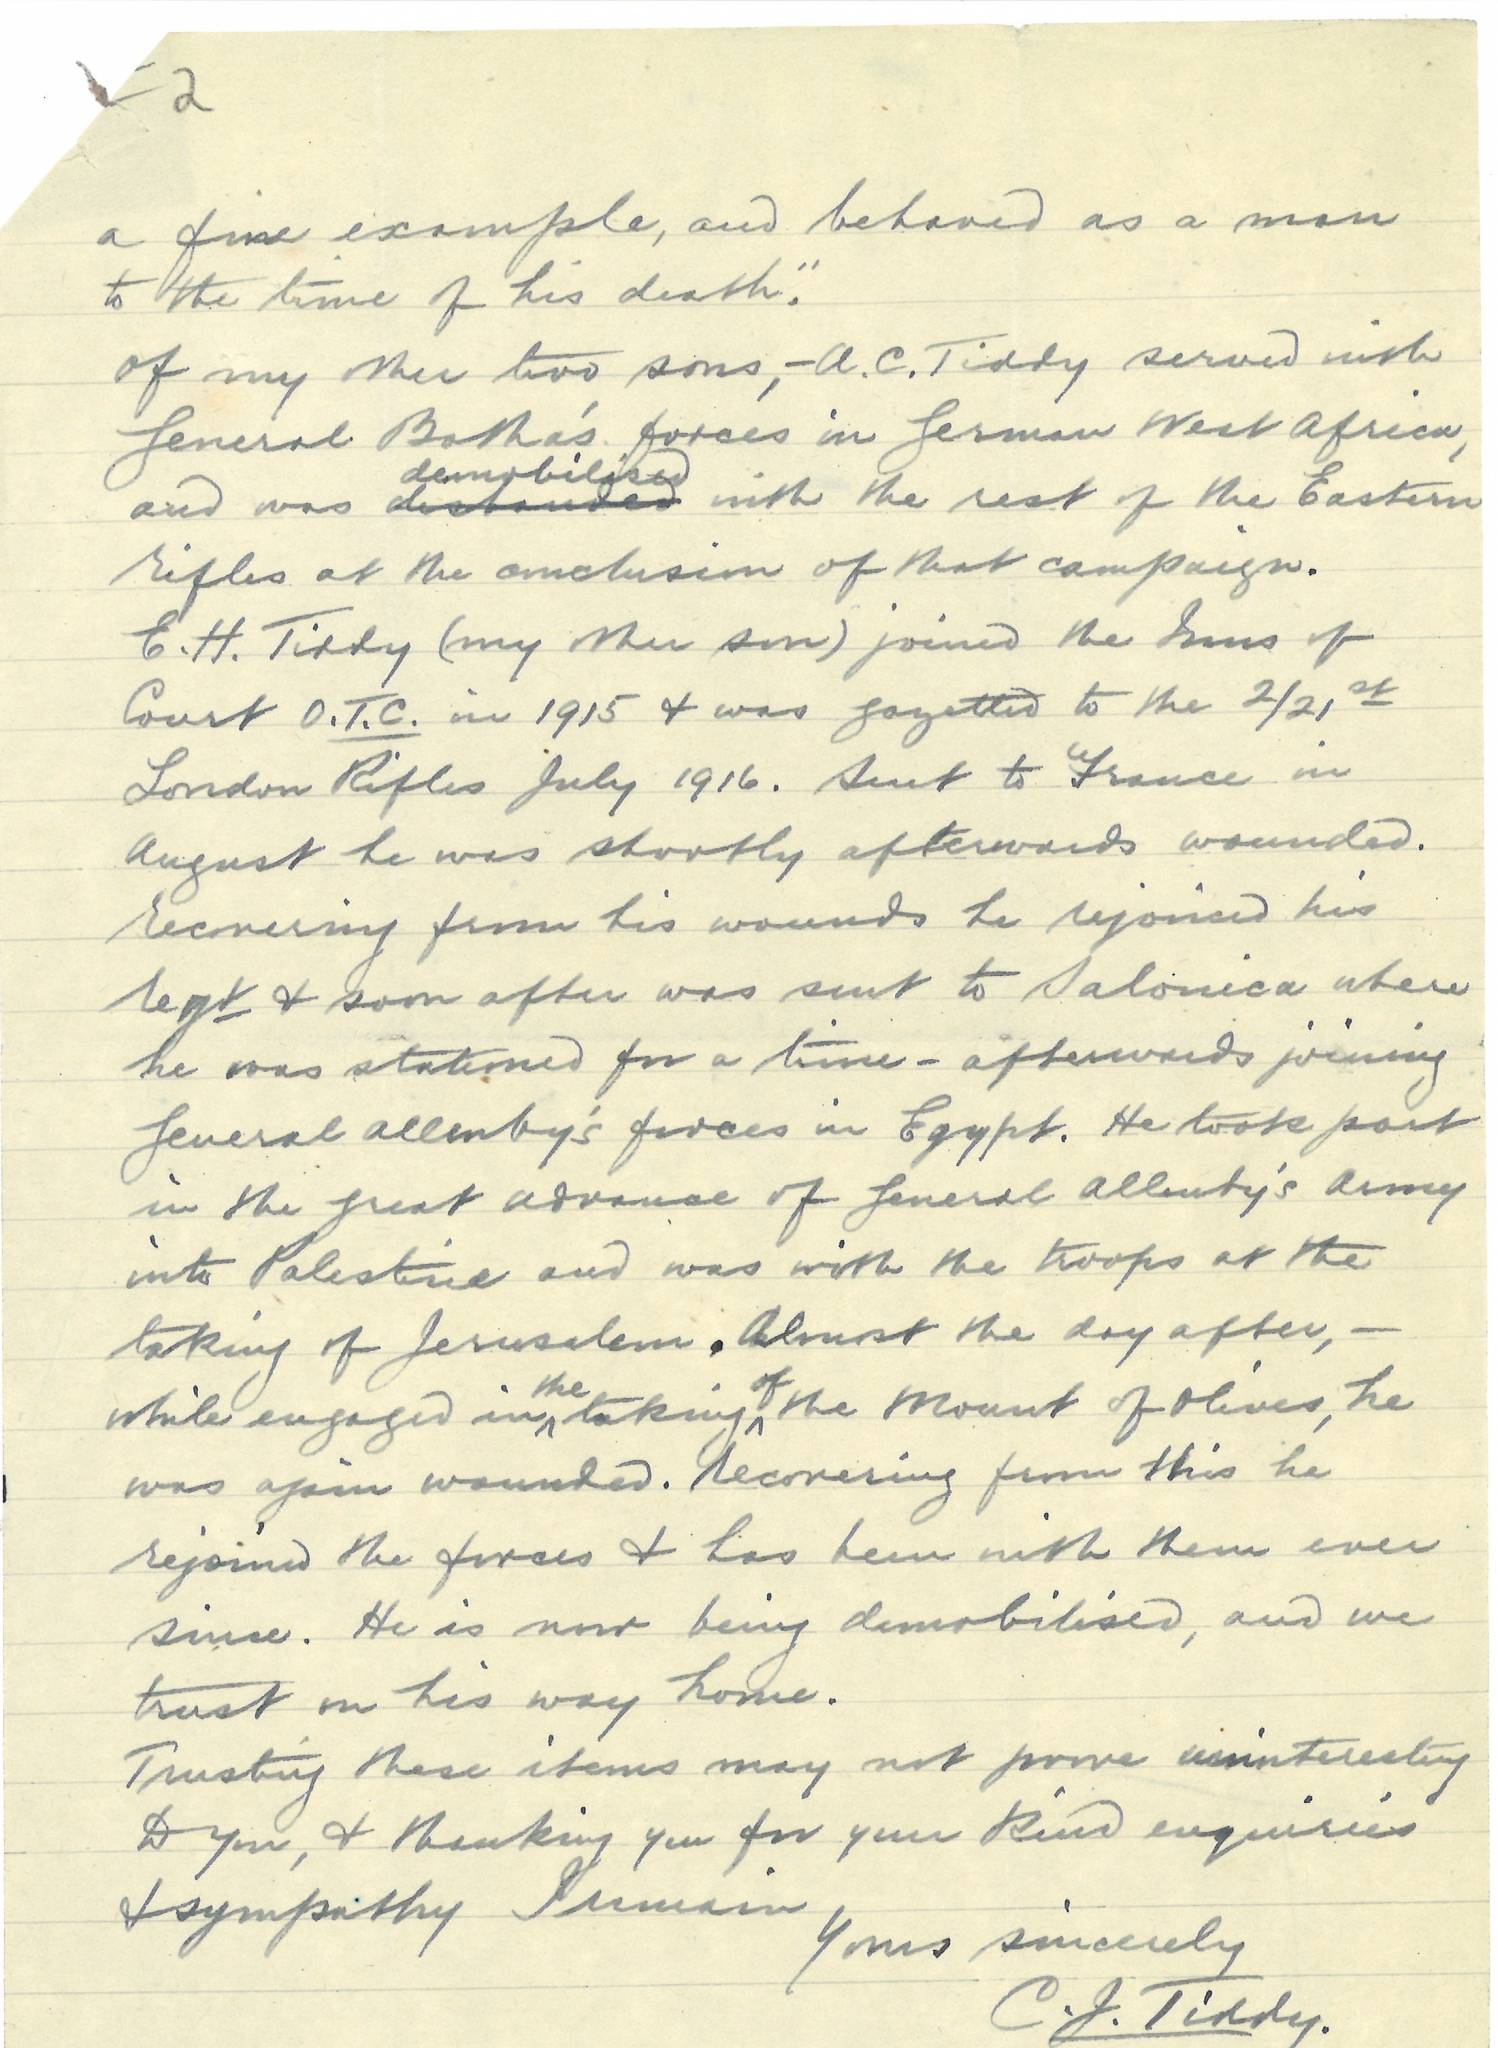 2
a fine example, and behaved as a man
to the time of his death".
Of my other two sons,- A.C. Tiddy served with
General Botha's forces in German West Africa,
demobilised
and was disbanded with the rest of the Eastern
Rifles at the conclusion of that campaign.
E.H. Tiddy (my other son) joined the Inns of
Court O.T.C. in 1915 & was gazetted to the 2/21st
London Rifles July 1916. Sent to France in
August he was shortly afterwards wounded.
Recovering from his wounds he rejoined his
Regt & soon after was sent to Salonica where
he was stationed for a time - afterwards joining
General Allenby's forces in Egypt. He took part
in the great advance of General Allenby's Army
into Palestine and was with the troops at the
taking of Jerusalem. Almost the day after, -
while engaged in the taking of the Mount of Olives, he
was again wounded. Recovering from this he
rejoined the forces & has been with them ever
since. He is now being demobilised, and we
trust on his way home.
Trusting these items may not prove uninteresting
to you, & thanking you for your kind enquiries
& sympathy I remain,
Yours sincerely
C.J. Tiddy.